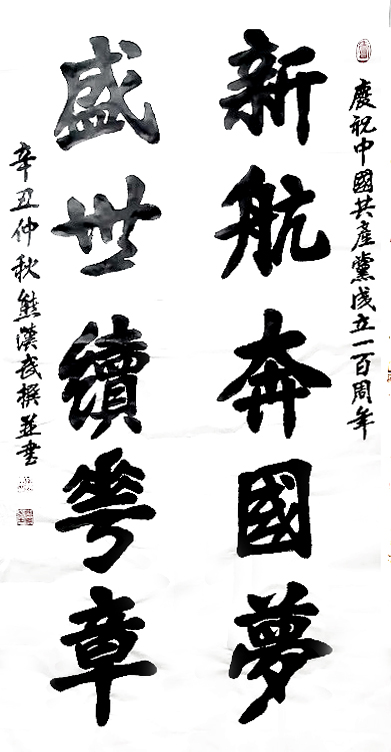 慶祝中國共產黨成立一百周年
新航奔國夢
盛世續華章
辛丑仲秋熊漢武撰並書